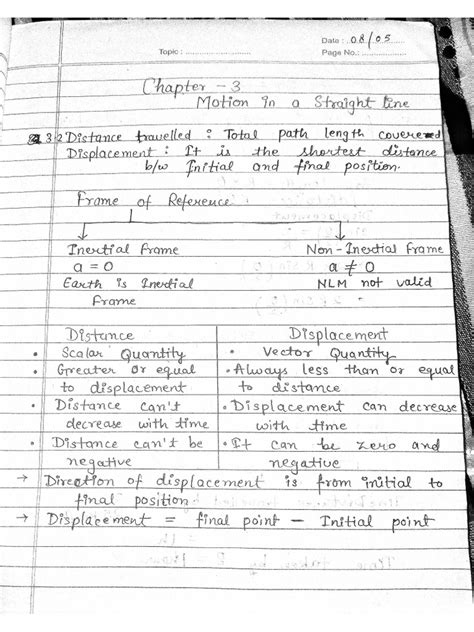 Date : 08/05
Topic :
Page No.:
Chapter - 3
Motion in a Straight line
3.2 Distance travelled : Total path length covered
Displacement : It is the shortest distance
b/w Initial and final position.
Frame of Reference
Inertial frame
Non-Inertial frame
a = 0
a ≠ 0
Earth is Inertial
NLM not valid
Frame
Distance
Displacement
• Scalar Quantity
• Vector Quantity
• Greater or equal
• Always less than or equal
to displacement
to distance
• Distance can't
• Displacement can decrease
decrease with time
with time
• Distance can't be
• It can be zero and
negative
negative
→ Direction of displacement is from initial to
final position
→ Displacement = final point - Initial point